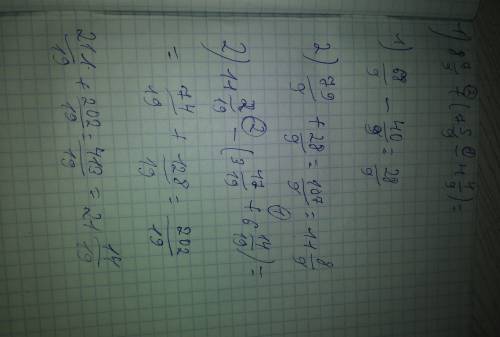 1) 8 7/9 + (7 5/9 - 4 4/9) =
1) 68/9 - 40/9 = 28/9
2) 79/9 + 28/9 = 107/9 = 11 8/9
2) 11 2/19 - (3 17/19 + 6 14/19) =
= 74/19 + 128/19 = 202/19
211/19 + 202/19 = 413/19 = 21 14/19